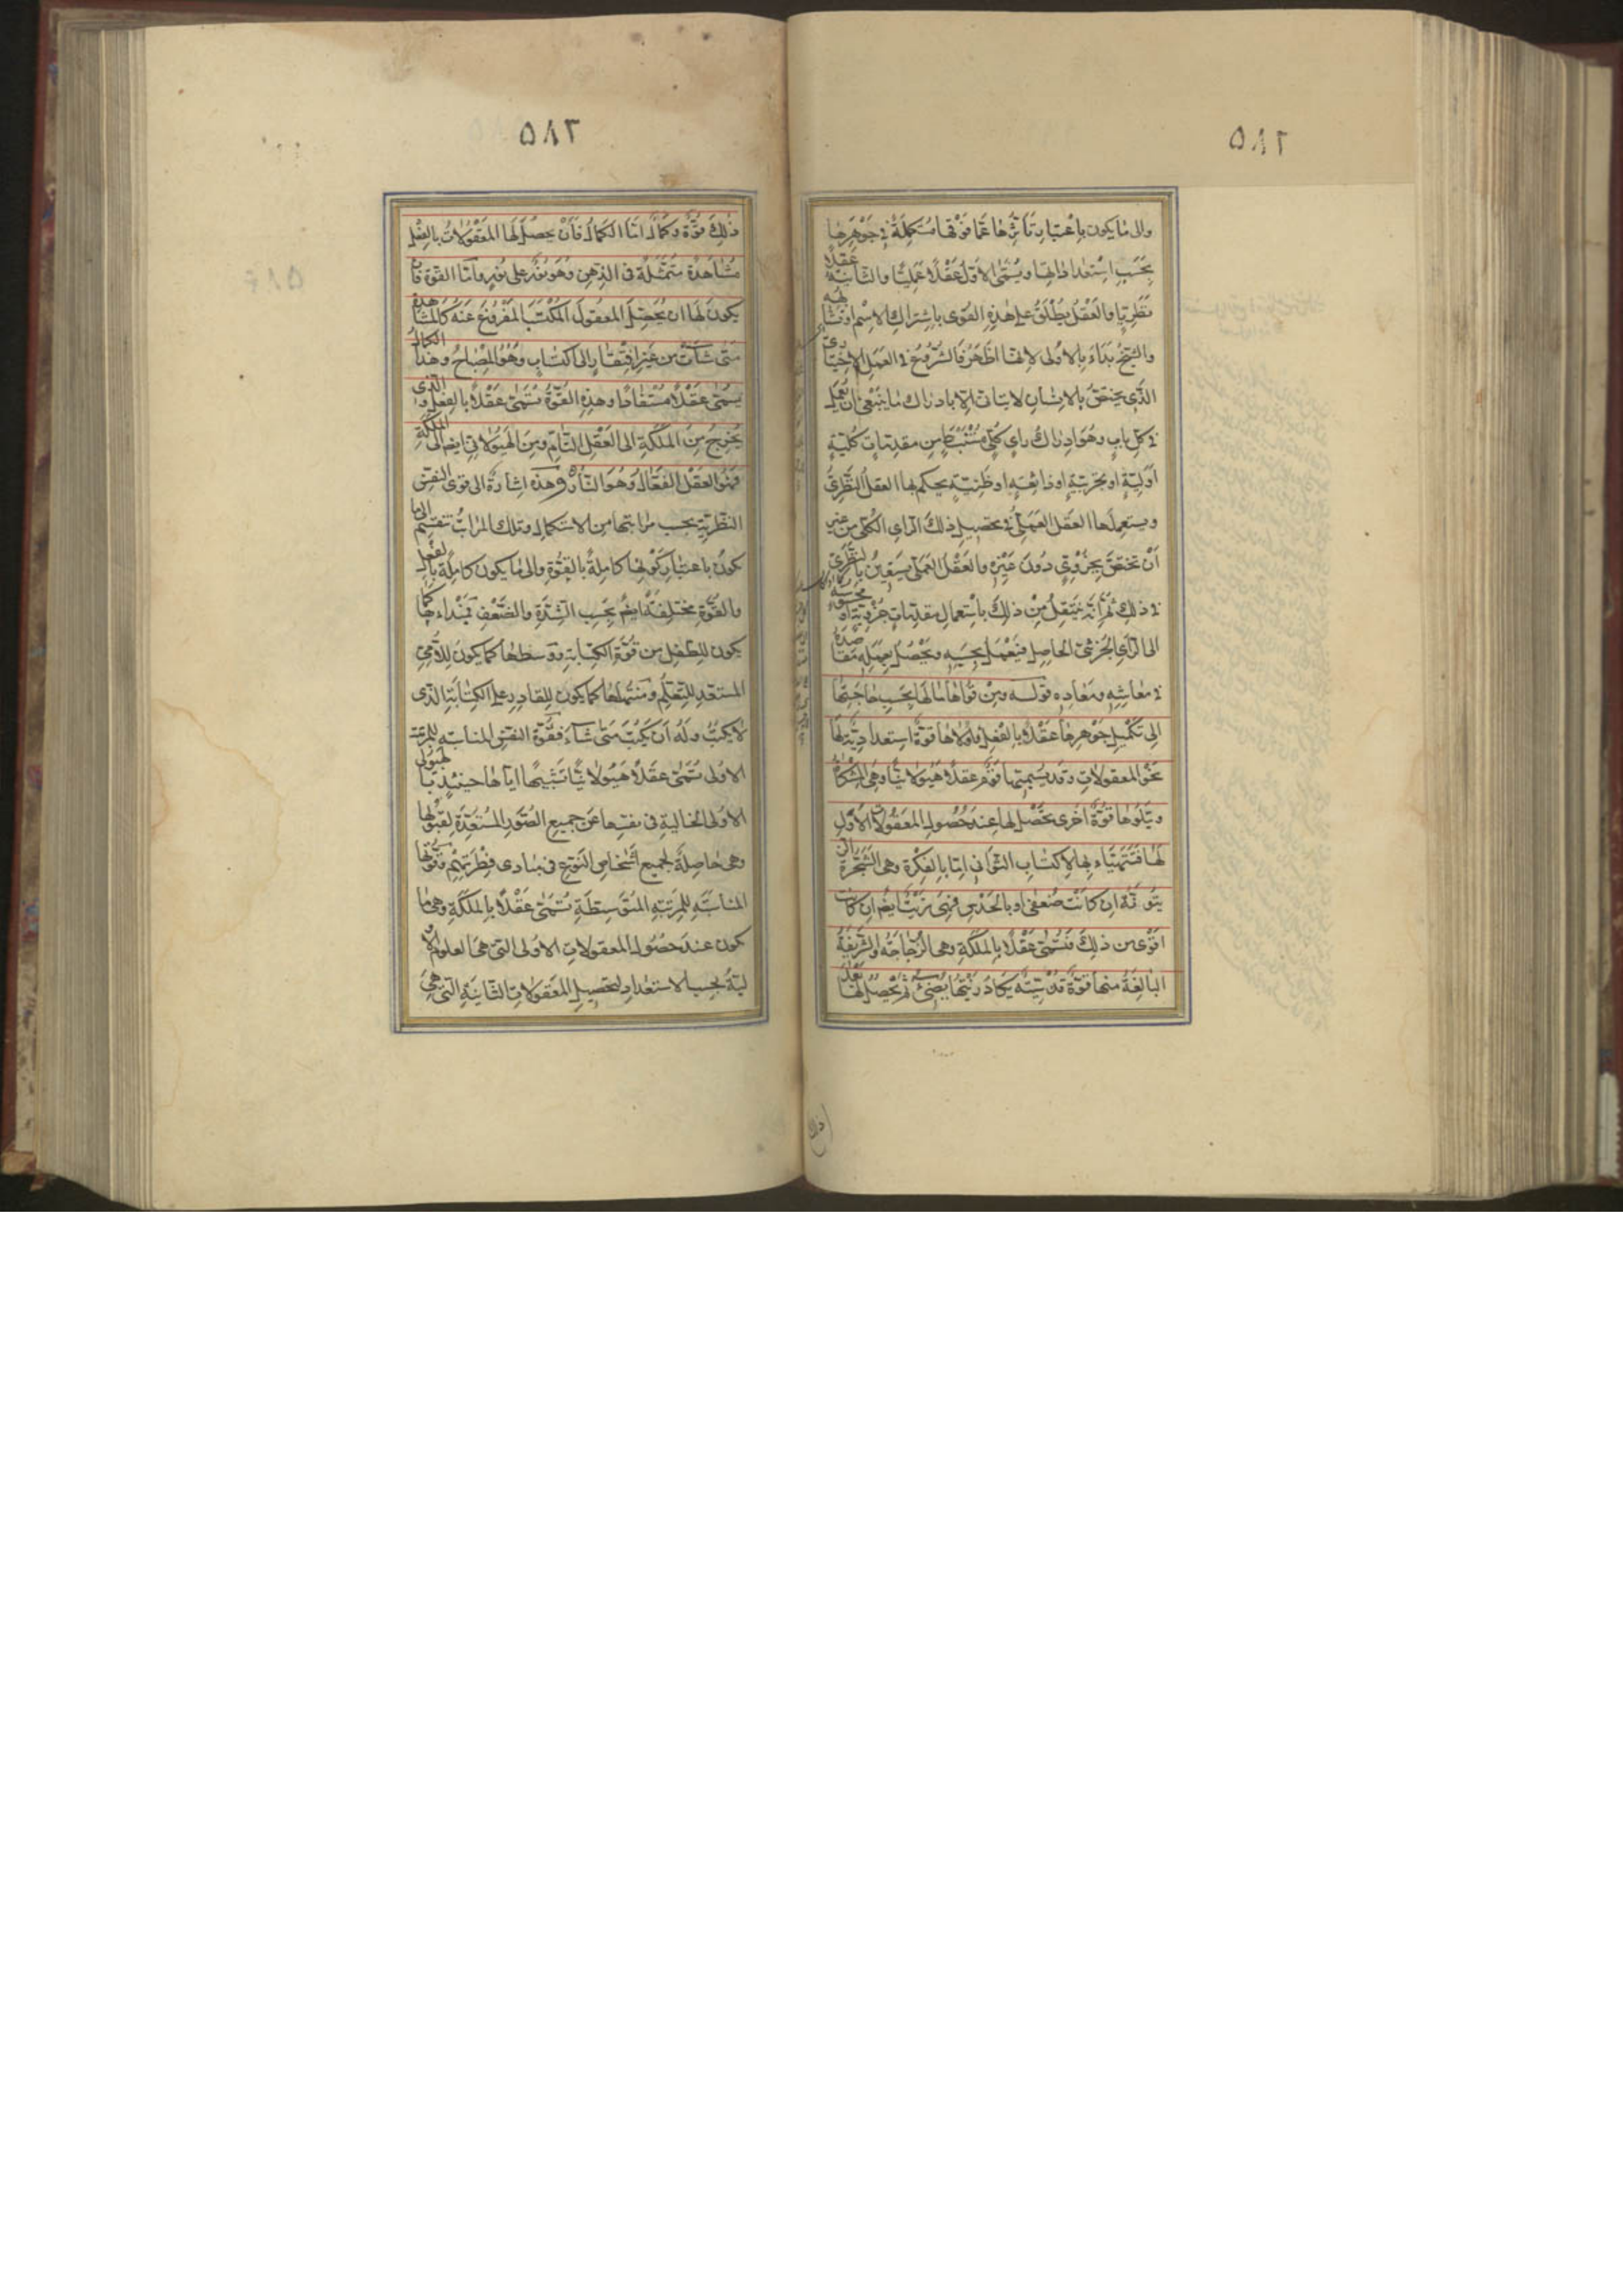 ٥٨٢
والى ما يكون باعتبار تأثرها عما فوقها مستكملة فى جوهرها
بحسب استعداداتها ويسمى الاول عقلا عمليا والثانية عقلا
نظريا والعقل يطلق على هذه القوى باشتراك الاسم او تشابهه
والشيخ بداء بالاولى لانها اظهر فالشروع فى العمل الاختيارى
الذى يختص بالانسان لا يتاتى الا بادراك ما ينبغى ان يعمل
فى كل باب وهو ادراك راى كلى مستنبط من مقدمات كلية
اولية او تجربية او ذائعة او ظنية يحكم بها العقل النظرى
ويستعملها العقل العملى فى تحصيل ذلك الراى الكلى من غير
ان تختص بجزوى دون غيره والعقل العملى يستعين بالنظرى
فى ذلك ثم انه ينتقل من ذلك باستعمال مقدمات جزوية او محسوسة
الى الراى الجزئى الحاصل فيعمل بحسبه ويحصل بعمله مقاصده
فى معاشه ومعاده قوله ومن قواها ما لها بحسب حاجتها
الى تكميل جوهرها عقلا بالفعل فاولاها قوة استعدادية لها
نحو المعقولات وقد يسميها قوم عقلا هيولانيا وهى المشكاة
ويتلوها قوة اخرى تحصل لها عند حصول المعقولات الاول
لها فتتهياء بها لاكتساب الثوانى اما بالفكرة وهى الشجرة الزيتونة
ان كانت ضعفى او بالحدس فهى زيت ايضا ان كانت
اقوى من ذلك فتسمى عقلا بالملكة وهى الزجاجة والشريفة
البالغة منها قوة قدسية يكاد زيتها يضئ ثم يحصل لها بعد
ذلك
٥٨٢
ذلك قوة وكمال اما الكمال فان يحصل لها المعقولات بالفعل
مشاهدة متمثلة فى الذهن وهو نور على نور واما القوة فان
يكون لها ان يحصل المعقول المكتسب المفروغ عنه كالمشاهدة
متى شاءت من غير افتقار الى اكتساب وهو المصباح وهذا الكمال
يسمى عقلا مستفادا وهذه القوة تسمى عقلا بالفعل والذى
يخرج من الملكة الى العقل التام ومن الهيولانى ايضا الى الملكة
فهو العقل الفعال وهو النار وهذه اشارة الى قوى النفس
النظرية بحسب مراتبها من الاستكمال وتلك المراتب تنقسم الى ما
يكون باعتبار كونها كاملة بالقوة والى ما يكون كاملة بالفعل
والقوة مختلفة ايضا بحسب الشدة والضعف فمبداءها كما
يكون للطفل من قوة الكتابة ووسطها كما يكون للامى
المستعد للتعلم ومنتهاها كما يكون للقادر على الكتابة الذى
لا يكتب وله ان يكتب متى شاء فقوة النفس المناسبه للمرتبة
الاولى تسمى عقلا هيولانيا تشبيها اياها حينئذ بالهيولى
الاولى الخالية فى نفسها عن جميع الصور المستعدة لقبولها
وهى حاصلة لجميع اشخاص النوع فى مبادى فطرتهم وقوتها
المناسبة للمرتبة المتوسطة تسمى عقلا بالملكة وهى ما
يكون عند حصول المعقولات الاولى التى هى العلوم الاو
لية بحسب الاستعداد لتحصيل المعقولات الثانية التى هى